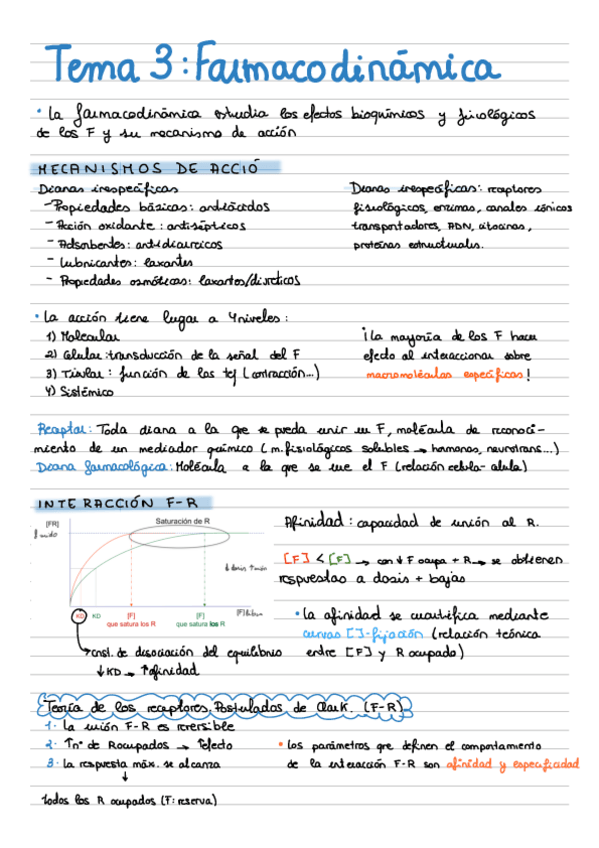 Tema 3: Farmacodinámica
• La farmacodinámica estudia los efectos bioquímicos y fisiológicos
de los F y su mecanismo de acción
MECANISMOS DE ACCIÓ
Dianas inespecíficas
- Propiedades básicas: antiácidos
- Acción oxidante: antisépticos
- Adsorbentes: antidiarreicos
- Lubricantes: laxantes
- Propiedades osmóticas: laxantes/diuréticos
Dianas inespecíficas: receptores
fisiológicos, enzimas, canales iónicos
transportadores, ADN, citocinas,
proteínas estructurales.
• La acción tiene lugar a 4 niveles:
1) Molecular
2) Celular: transducción de la señal del F
3) Tisular: función de los tej (contracción...)
4) Sistémico
¡La mayoría de los F hacen
efecto al interaccionar sobre
macromoléculas específicas!
Receptor: Toda diana a la que se pueda unir un F, molécula de reconoci-
miento de un mediador químico (m. fisiológicos solubles → hormonas, neurotrans...)
Diana farmacológica: Molécula a la que se une el F (relación célula-célula)
INTERACCIÓN F-R
[FR]
Saturación de R
↓ dosis ↑ unión
KD
KD
[F]
que satura los R
[F]
que satura los R
[F] libre
const. de disociación del equilibrio
↓KD → ↑afinidad
Afinidad: capacidad de unión al R.
[F] < [F] → con ↓ F ocupa + R → se obtienen
respuestas a dosis + bajas
• La afinidad se cuantifica mediante
curvas []-fijación (relación teórica
entre [F] y R ocupado)
Teoría de los receptores. Postulados de Clark. (F-R)
1. La unión F-R es reversible
2. ↑nº de R ocupados → ↑efecto
3. La respuesta máx. se alcanza
↓
todos los R ocupados (F: reserva)
• Los parámetros que definen el comportamiento
de la interacción F-R son afinidad y especificidad